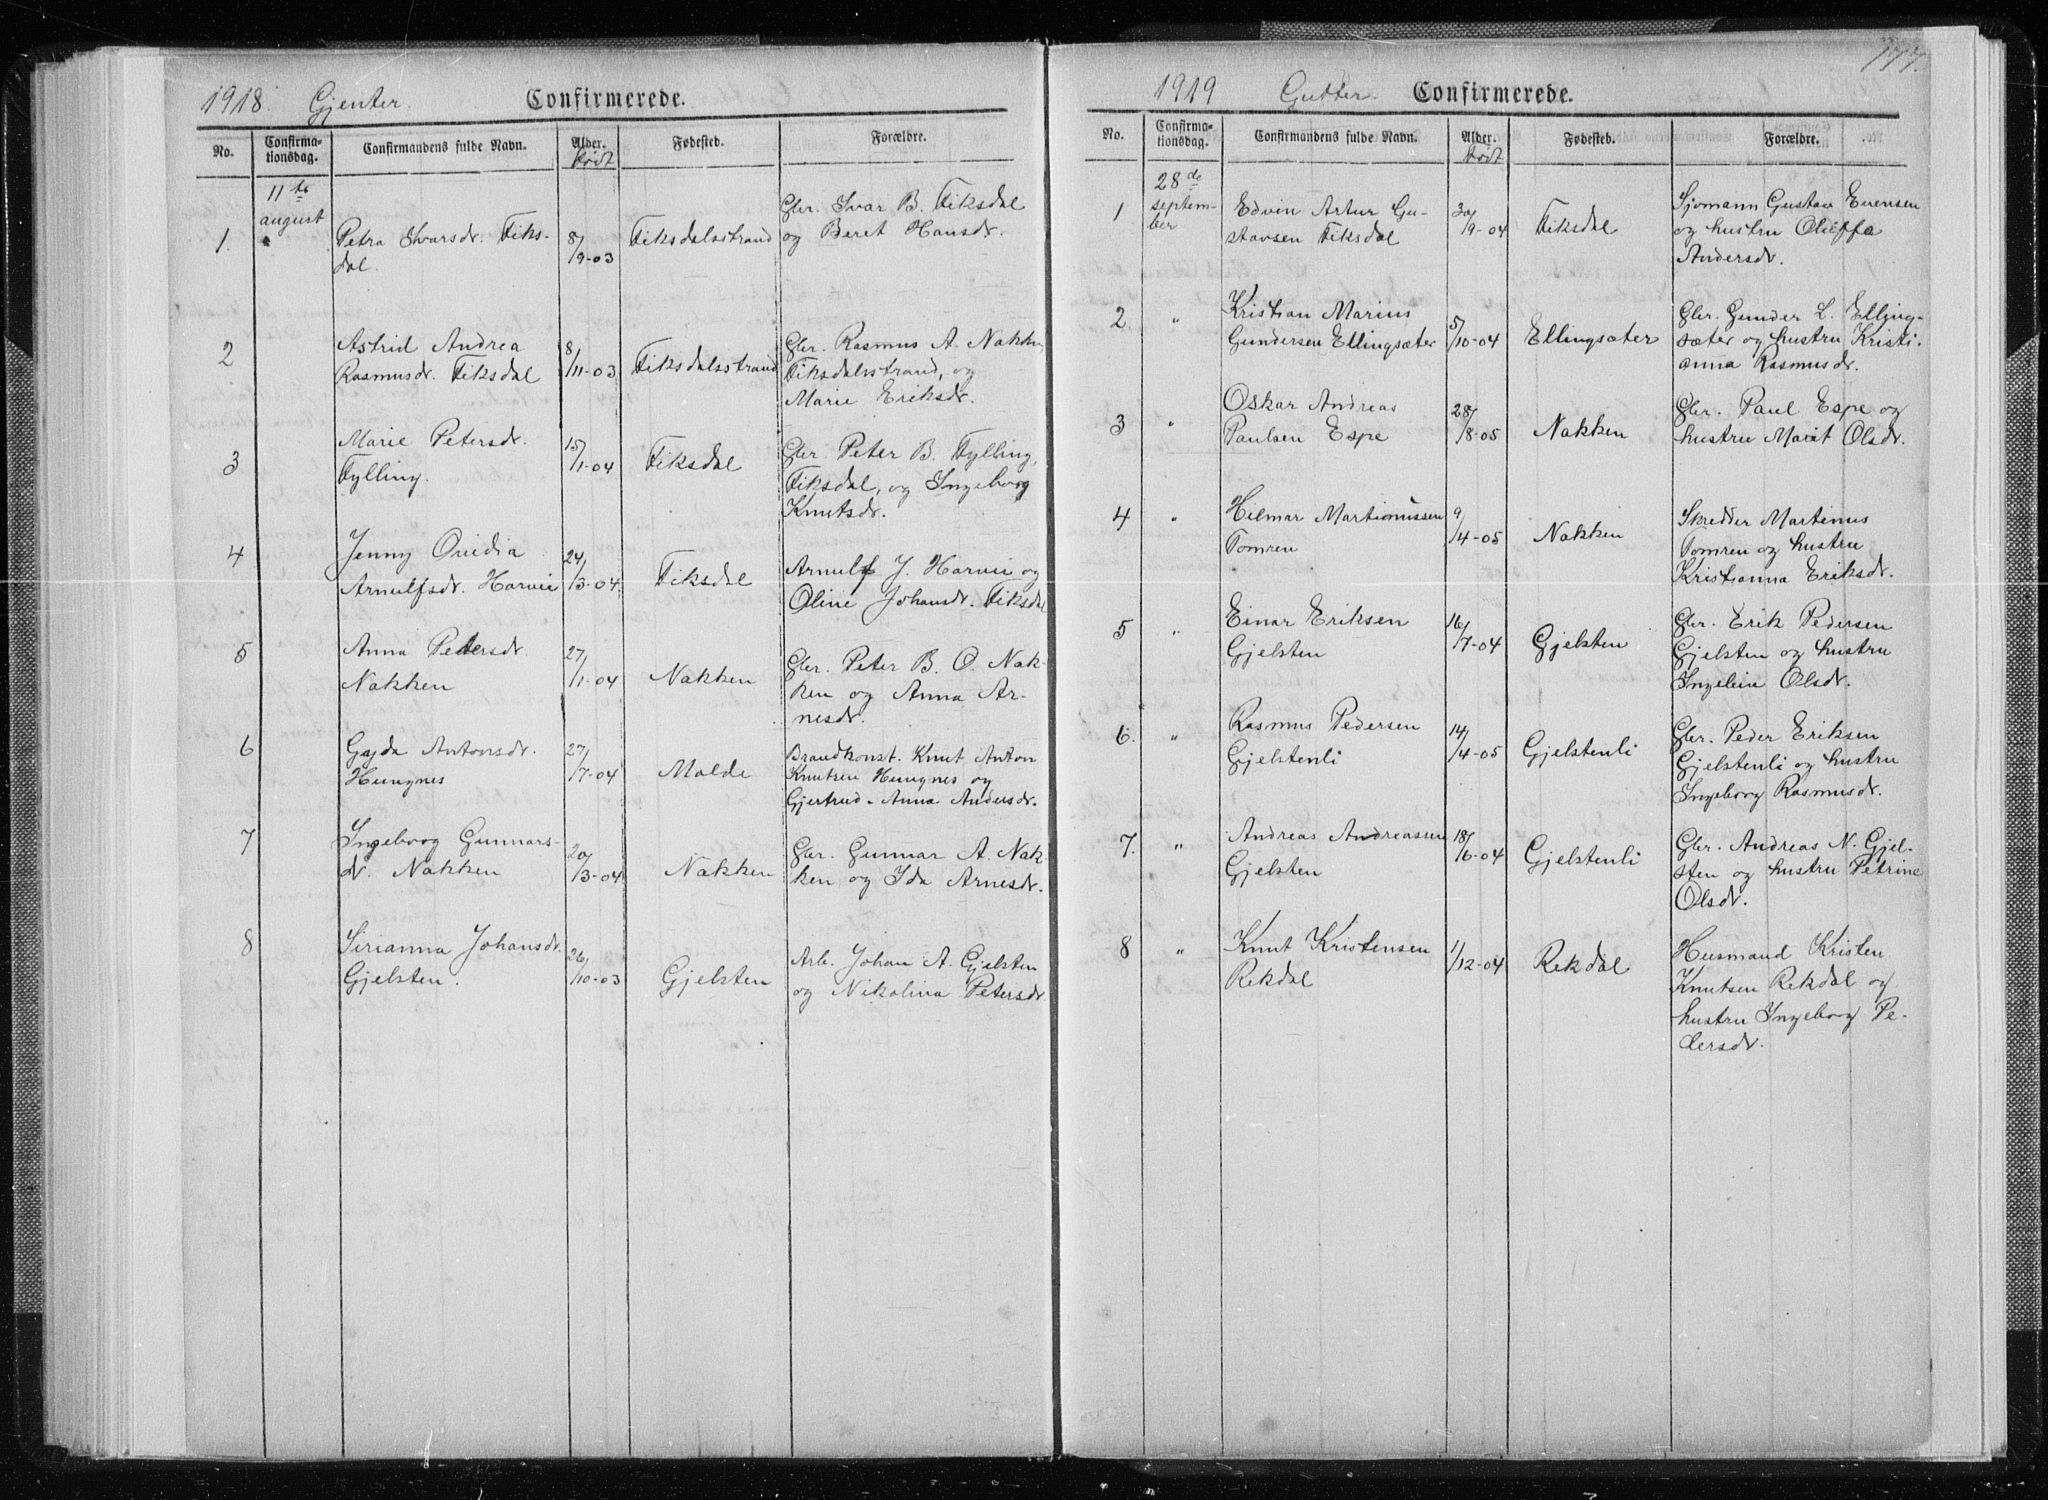 1918. Gjenter. Confirmerede.
No. Confirma-tionsdag. Confirmandens fulde Navn. Alder. født Fødested. Forældre.
11te
august
1. Petra Ivarsdr. Fiks-
dal. 8/9-03 Fiksdalsstrand Gbr. Ivar B. Fiksdal
og Beret Hansdr.
2 Astrid Andrea
Rasmusdr. Fiksdal 8/11-03 Fiksdalsstrand Gbr. Rasmus A. Nakk.
Fiksdalsstrand, og
Marie Eriksdr.
3 Marie Petersdr.
Fylling. 15/1-04 Fiksdal Gbr. Peter B. Fylling,
Fiksdal, og Ingeborg
Knutsdr.
4 Jenny Ovidia
Arnulfsdr. Harvei 24/3-04 Fiksdal Arnulf J. Harvei og
Oline Johansdr. Fiksdal
5 Anna Petersdr.
Nakken 27/1-04 Nakken Gbr. Peter B. O. Nak-
ken og Anna Ar-
nesdr.
6 Gyda Antonsdr.
Hungnes 27/7-04 Molde Brandkonst. Knut Anton
Knutsen Hungnes og
Gjertrud-Anna Andersdr.
7 Ingeborg Gunnars-
dr. Nakken 20/3-04 Nakken Gbr. Gunnar A. Nak-
ken og Ida Arnesdr.
8 Sirianna Johansdr.
Gjelsten. 26/10-03 Gjelsten Arb. Johan A. Gjelsten
og Nikolina Petersdr.
1919 Gutter. Confirmerede. 177.
No. Confirma-tionsdag. Confirmandens fulde Navn. Alder. født Fødested. Forældre.
28de
septem-
ber
1 Edvin Artur Gu-
stavsen Fiksdal 30/9-04 Fiksdal Sjømann Gustav Evensen
og hustru Oleffa
Andersdr.
2 " Kristian Marius
Gundersen Ellingsæter 5/10-04 Ellingsæter Gbr. Gunder L. Elling-
sæter og hustru Kristi-
anna Rasmusdr.
3 " Oskar Andreas
Paulsen Espe 28/8-05 Nakken Gbr. Paul Espe og
hustru Marit Olsdr.
4 " Hilmar Martinussen
Tomren 9/4-05 Nakken Skredder Martinus
Tomren og hustru
Kristianna Eriksdr.
5 " Einar Eriksen
Gjelsten 16/7-04 Gjelsten Gbr. Erik Pedersen
Gjelsten og hustru
Ingeleiv Olsdr.
6. " Rasmus Pedersen
Gjelstenli 14/4-05 Gjelstenli Gbr. Peder Eriksen
Gjelstenli og hustru
Ingeborg Rasmusdr.
7. " Andreas Andreassen
Gjelsten 18/6-04 Gjelstenli Gbr. Andreas N. Gjel-
sten og hustru Petrine
Olsdr.
8 " Knut Kristensen
Rekdal 1/12-04 Rekdal Husmand Kristen
Knutsen Rekdal og
hustru Ingeborg Pe-
dersdr.